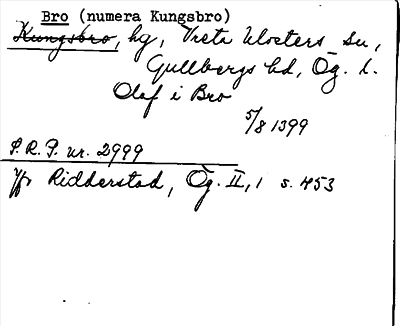 Bro (numera Kungsbro)
Kungsbro, hg, Vreta Klosters Sn,
Gullbergs hd, Ög. l.
Olaf i Bro
5/8 1399
P. R. P. nr. 2999
Jfr Ridderstad, Ög. II, 1 s. 453